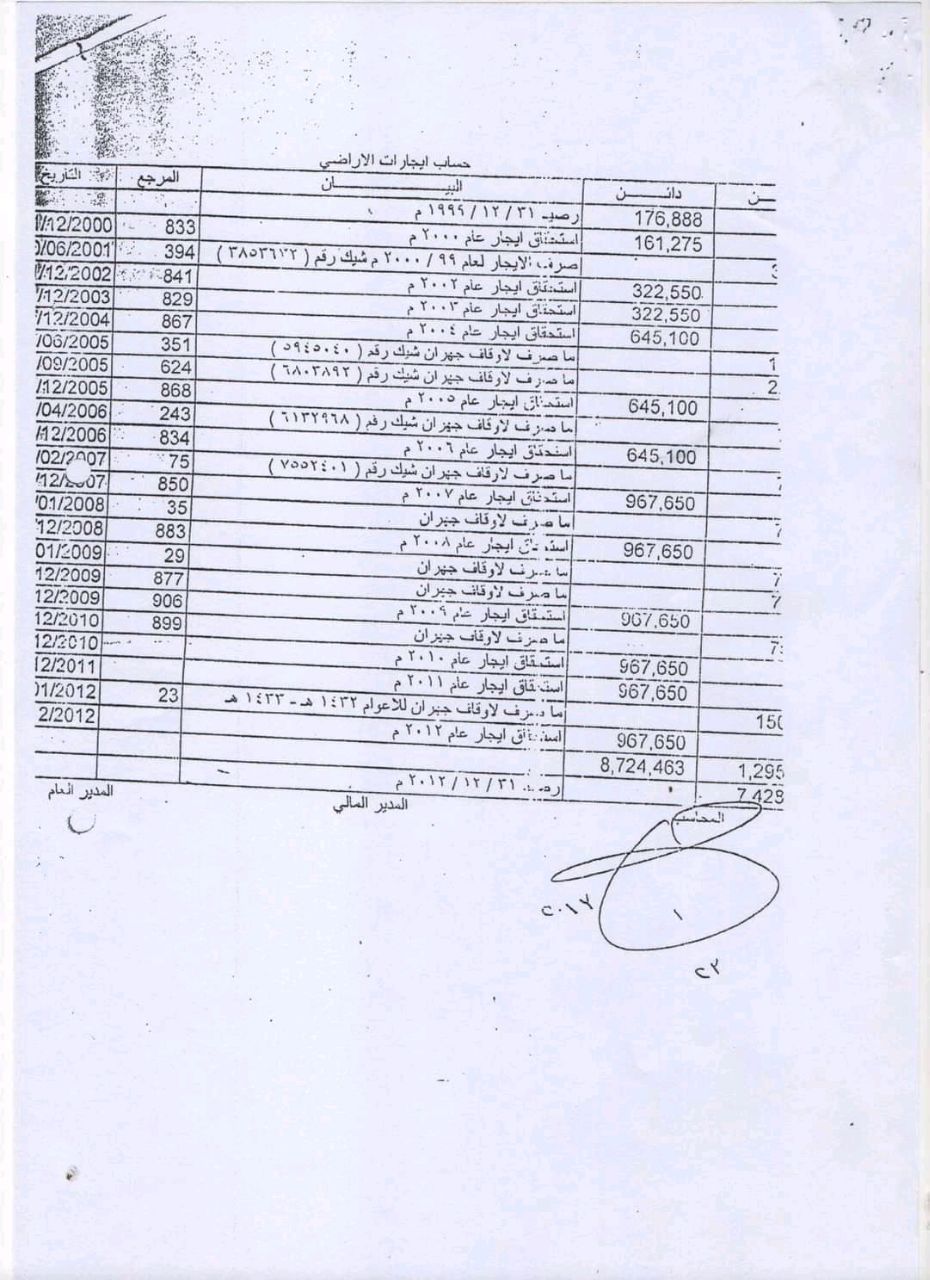 حساب ايجارات الاراضي
ـن دائــن البيــــــــان المرجع التاريخ
176,888 رصيد ٣١ / ١٢ / ١٩٩٩ م
161,275 استحقاق ايجار عام ٢٠٠٠ م 833 /12/2000
صرف الايجار لعام ٩٩ / ٢٠٠٠ م شيك رقم ( ٣٨٥٣٦٢٢ ) 394 /06/2001
322,550 استحقاق ايجار عام ٢٠٠٢ م 841 /12/2002
322,550 استحقاق ايجار عام ٢٠٠٣ م 829 /12/2003
645,100 استحقاق ايجار عام ٢٠٠٤ م 867 /12/2004
1 ما صرف لاوقاف جهران شيك رقم ( ٥٩٤٥٠٤٠ ) 351 /06/2005
2 ما صرف لاوقاف جهران شيك رقم ( ٦٨٠٣٨٩٢ ) 624 /09/2005
645,100 استحقاق ايجار عام ٢٠٠٥ م 868 /12/2005
ما صرف لاوقاف جهران شيك رقم ( ٦١٣٢٩٦٨ ) 243 /04/2006
645,100 استحقاق ايجار عام ٢٠٠٦ م 834 /12/2006
ما صرف لاوقاف جهران شيك رقم ( ٧٥٥٢٤٠١ ) 75 /02/2007
967,650 استحقاق ايجار عام ٢٠٠٧ م 850 /12/2007
7 ما صرف لاوقاف جهران 35 /01/2008
967,650 استحقاق ايجار عام ٢٠٠٨ م 883 /12/2008
7 ما صرف لاوقاف جهران 29 01/2009
7 ما صرف لاوقاف جهران 877 12/2009
967,650 استحقاق ايجار عام ٢٠٠٩ م 906 12/2009
7 ما صرف لاوقاف جهران 899 12/2010
967,650 استحقاق ايجار عام ٢٠١٠ م 12/2010
967,650 استحقاق ايجار عام ٢٠١١ م 12/2011
150 ما صرف لاوقاف جهران للاعوام ١٤٣٢ هـ - ١٤٣٣ هـ 23 01/2012
967,650 استحقاق ايجار عام ٢٠١٢ م 2/2012
1,295 8,724,463
7,429 رصيد ٣١ / ١٢ / ٢٠١٢ م
المحاسب المدير المالي المدير العام
٢٠١٧
١
٢٢